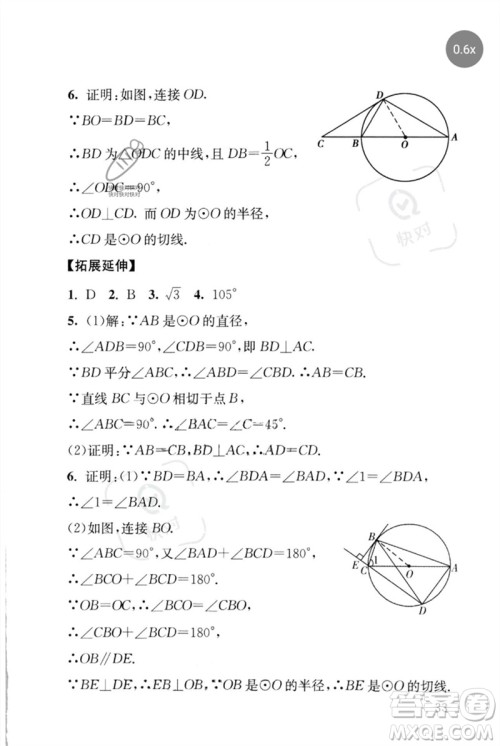 0.6x
6. 证明:如图,连接 OD.
∵BO=BD=BC,
∴BD 为△ODC 的中线,且 DB=1/2OC,
∴∠ODC=90°,
∴OD⊥CD. 而 OD 为⊙O 的半径,
∴CD 是⊙O 的切线.
D
C B O A
【拓展延伸】
1. D 2. B 3. √3 4. 105°
5. (1)解:∵AB 是⊙O 的直径,
∴∠ADB=90°,∠CDB=90°,即 BD⊥AC.
∵BD 平分∠ABC,∴∠ABD=∠CBD,∴AB=CB.
∵直线 BC 与⊙O 相切于点 B,
∴∠ABC=90°.∴∠A=∠C=45°.
(2)证明:∵AB=CB,BD⊥AC,∴AD=CD.
6. 证明:(1)∵BD=BA,∴∠BDA=∠BAD.∵∠1=∠BDA,
∴∠1=∠BAD.
(2)如图,连接 BO.
∵∠ABC=90°,又∠BAD+∠BCD=180°,
∴∠BCO+∠BCD=180°.
∵OB=OC,∴∠BCO=∠CBO.
∴∠CBO+∠BCD=180°.
∴OB∥DE.
∵BE⊥DE,∴EB⊥OB.∵OB 是⊙O 的半径,∴BE 是⊙O 的切线.
B
E C 1 O A
D
快对
快对
答案圈
MXQE.COM